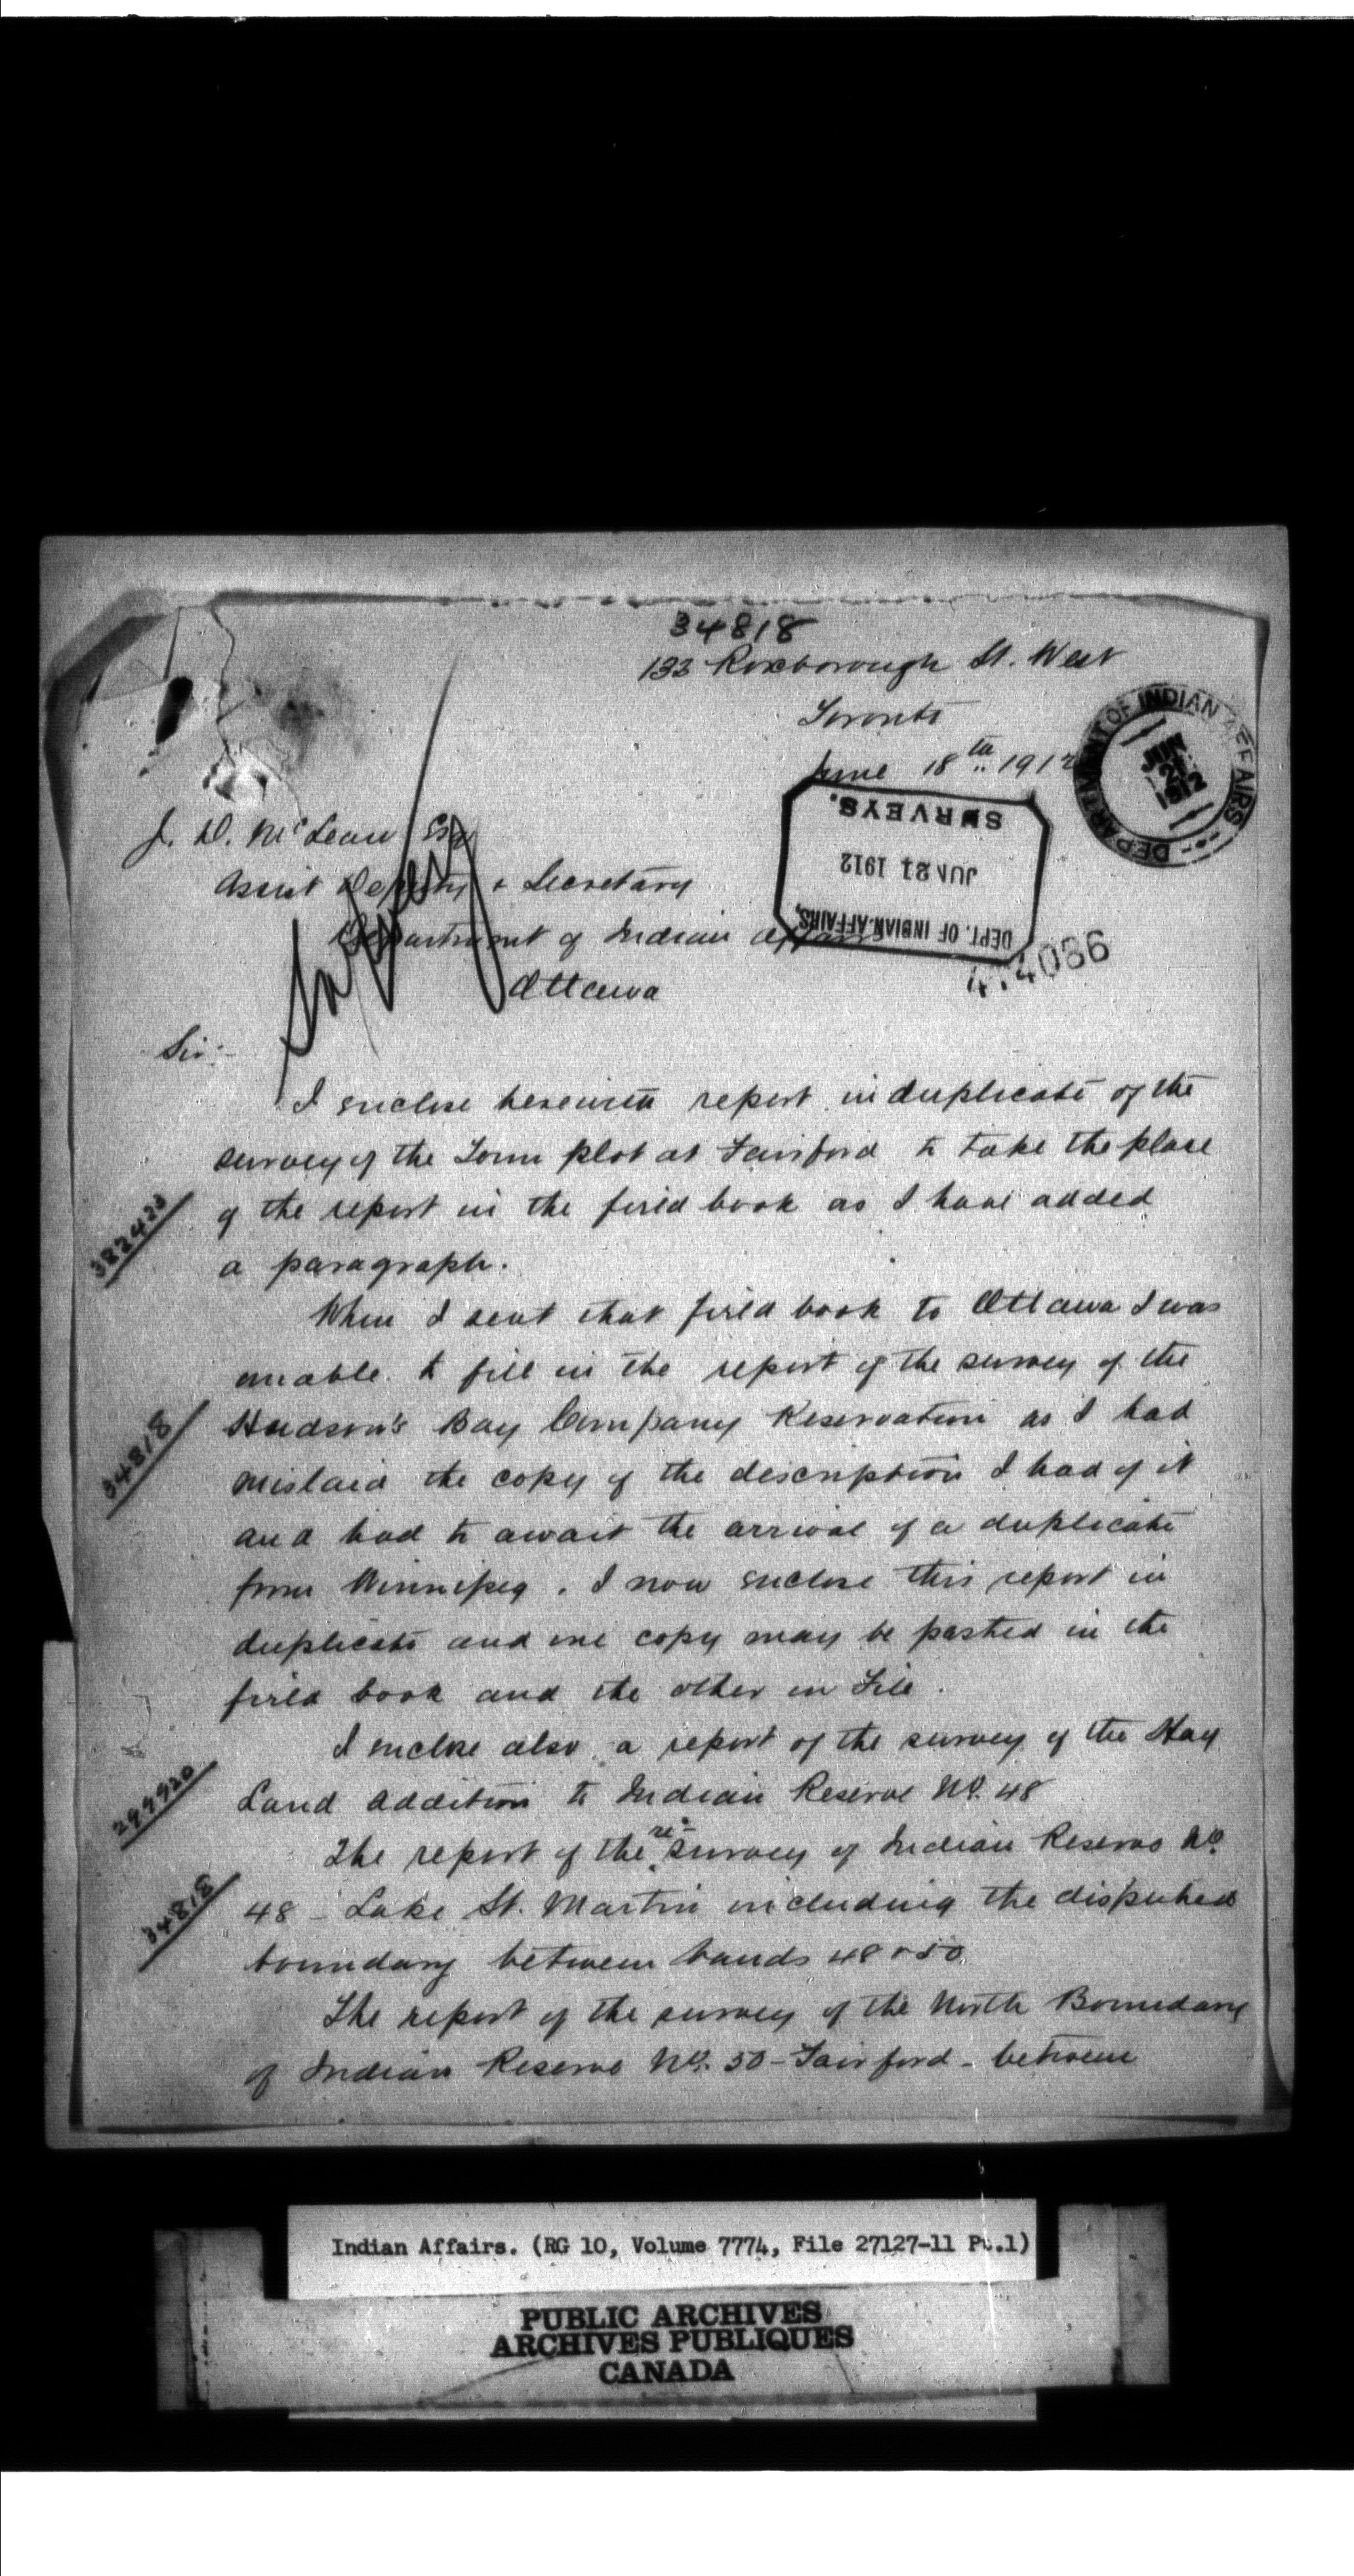 34818
133 Roxborough St. West
Toronto
June 18th 1912
DEPARTMENT OF INDIAN AFFAIRS
JUN 21 1912
SURVEYS.
JUN 21 1912
DEPT. OF INDIAN AFFAIRS,
J. D. McLean Esq
Assist Deputy & Secretary
Department of Indian Affairs
Ottawa
Sir:-
I enclose herewith report in duplicate of the
survey of the Town plot at Fairford to take the place
of the report in the field book as I have added
a paragraph.
When I sent that field book to Ottawa I was
unable to fill in the report of the survey of the
34818
Hudson's Bay Company Reservation as I had
mislaid the copy of the description I had of it
and had to await the arrival of a duplicate
from Winnipeg. I now enclose this report in
duplicate and one copy may be pasted in the
field book and the other on File.
I enclose also a report of the survey of the Hay
Land addition to Indian Reserve No. 48
The report of the re-survey of Indian Reserve No
34818
48 - Lake St. Martin including the disputed
boundary between bands 48 & 50.
The report of the survey of the North Boundary
of Indian Reserve No. 50 - Fairford - between
Indian Affairs. (RG 10, Volume 7774, File 27127-11 Pt.1)
PUBLIC ARCHIVES
ARCHIVES PUBLIQUES
CANADA